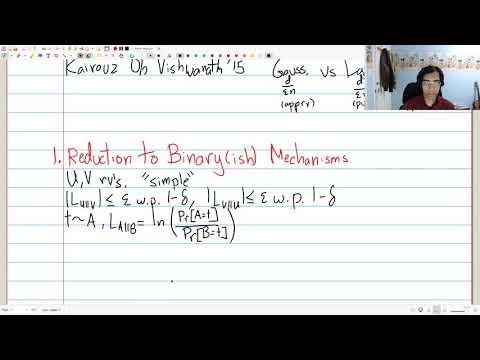 Kairouz Oh Vishwanath '15 Gauss. vs La
d/εn d/εn
(apprx) (pu
1. Reduction to Binary(ish) Mechanisms
U,V rv's. "simple"
|L_{U||V}| ≤ ε w.p. 1-δ, |L_{V||U}| ≤ ε w.p. 1-δ
t~A, L_{A||B} = ln(Pr[A=t]/Pr[B=t])